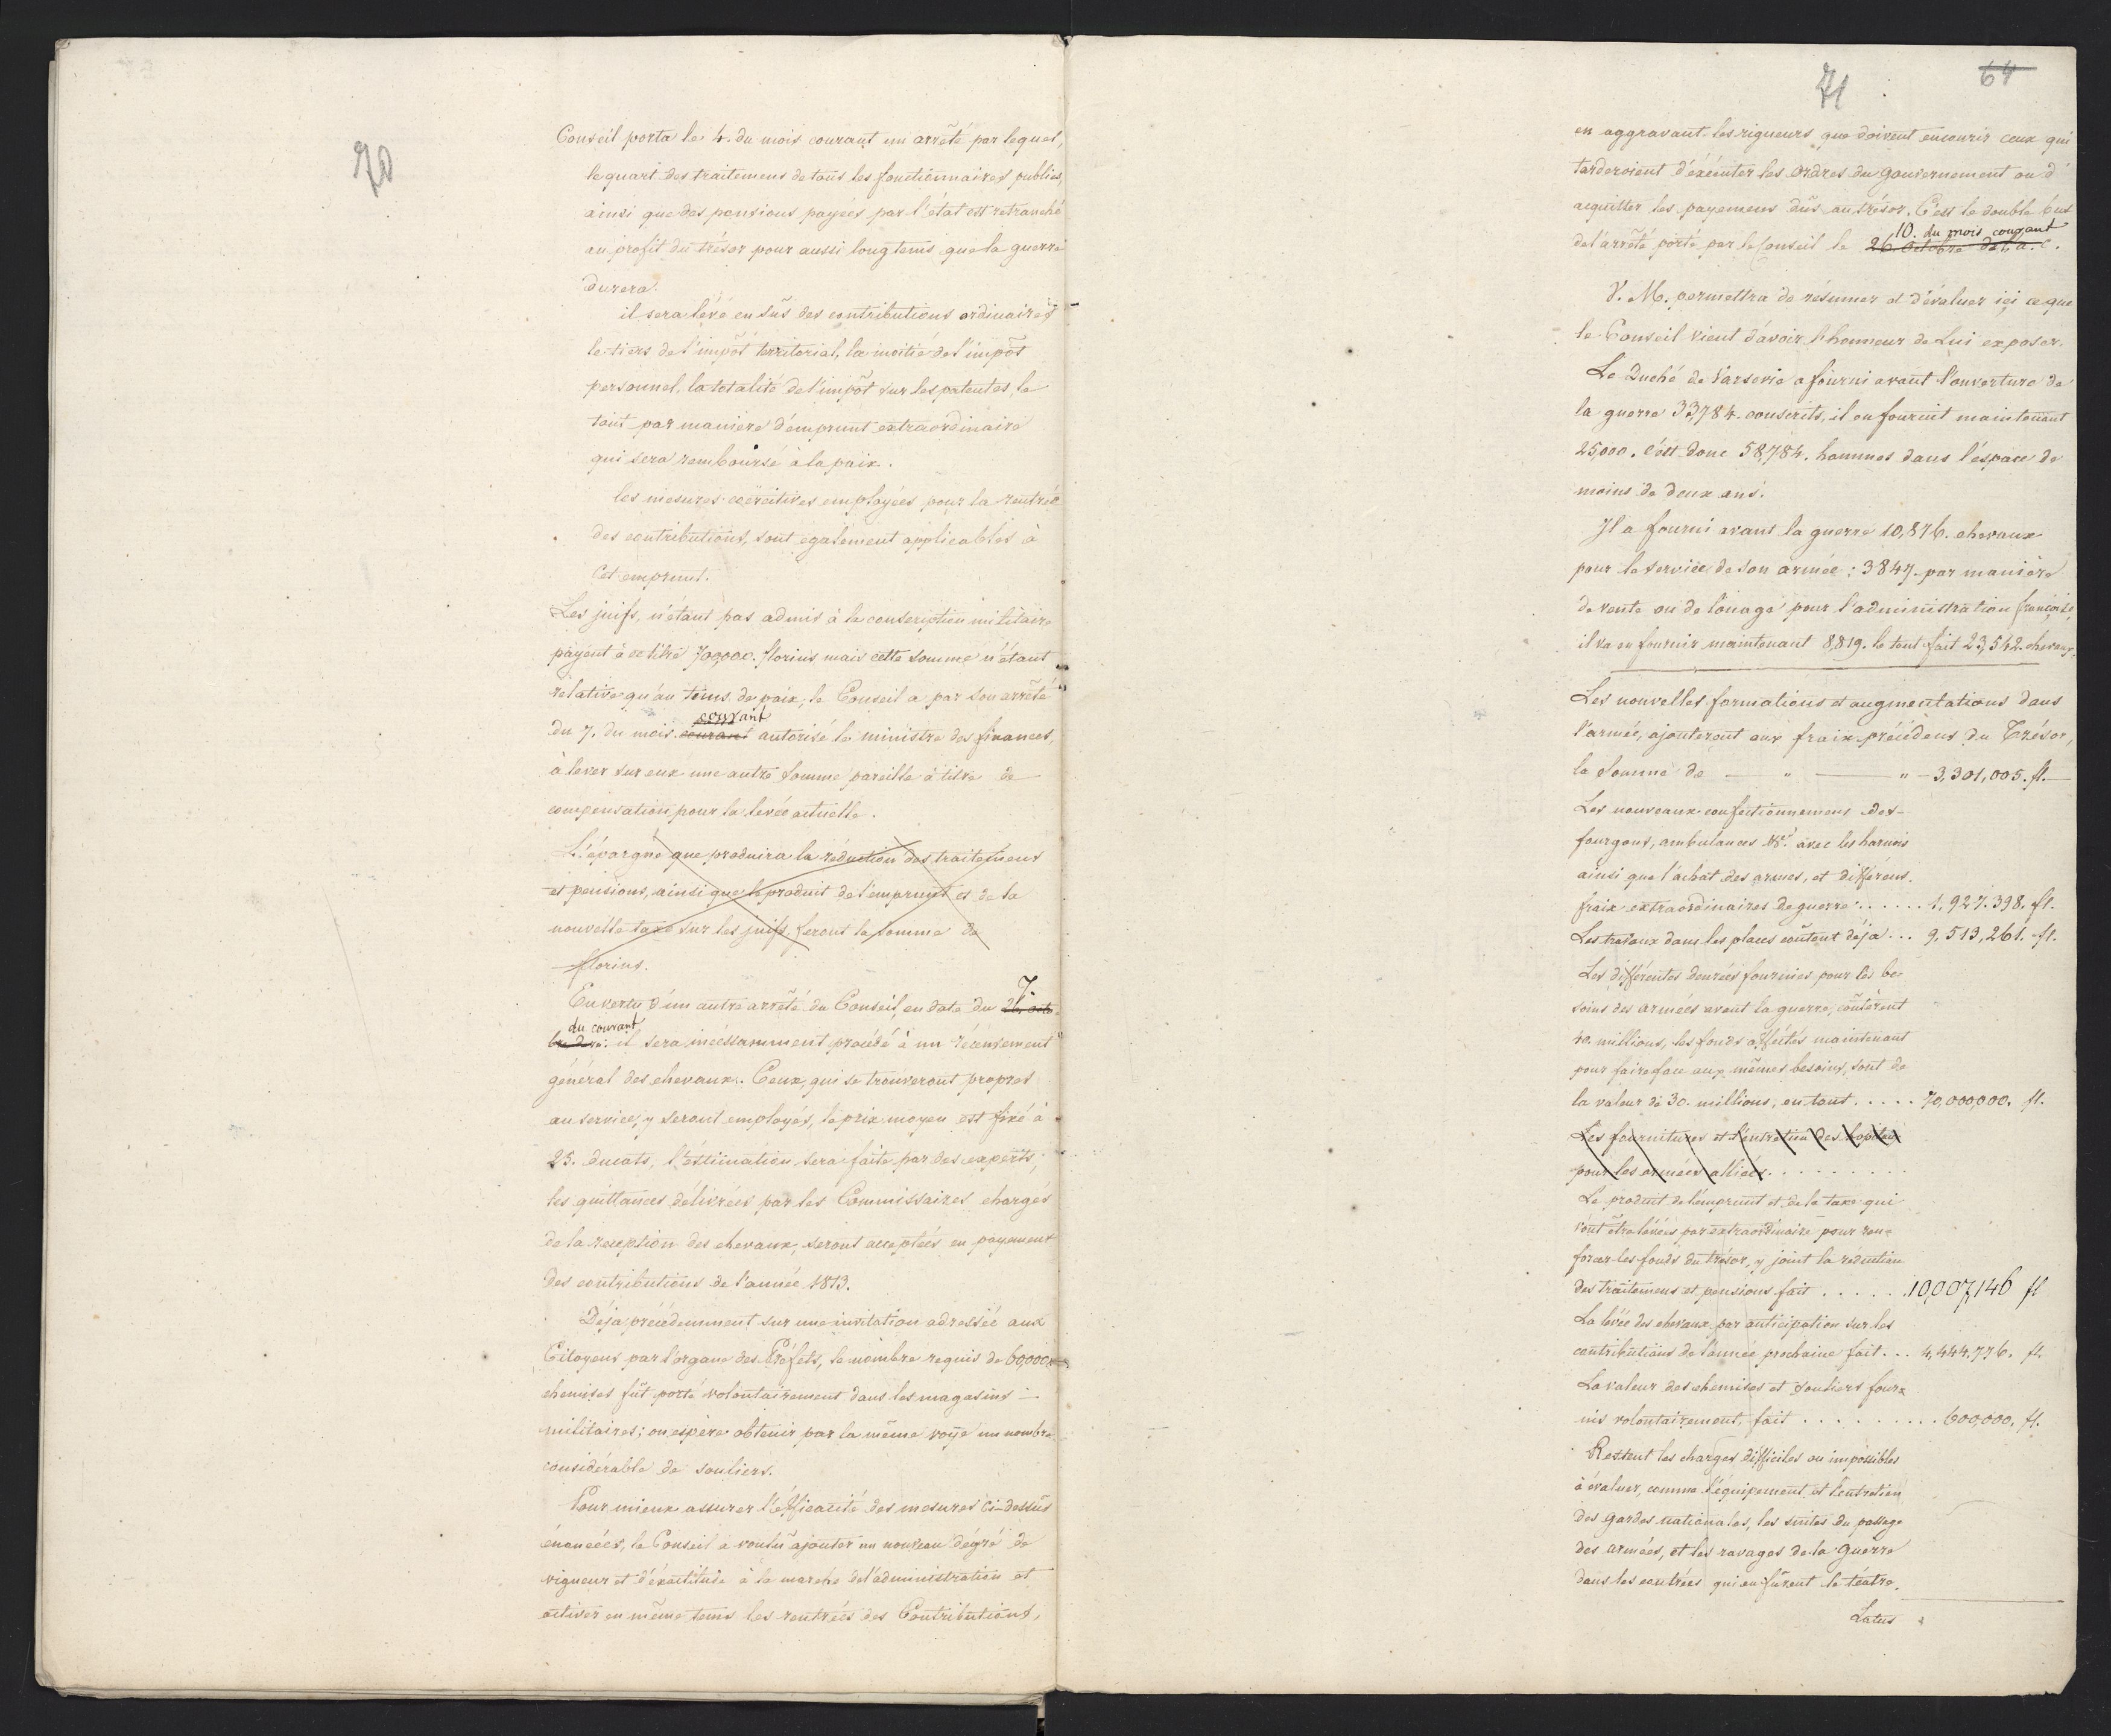 70
Conseil porta le 4. du mois courant un arrêté par lequel,
le quart des traitemens de tous les fonctionnaires publics,
ainsi que des pensions payées par l'état est retranché
au profit du trésor pour aussi longtems que la guerre
durera.
il sera levé en sus des contributions ordinaires
le tiers de l'impôt territorial, la moitié de l'impôt
personnel, la totalité de l'impôt sur les patentes, le
tout par maniere d'emprunt extraordinaire
qui sera remboursé à la paix.
les mesures coërcitives employées pour la rentrée
des contributions, sont également applicables à
cet emprunt.
Les juifs, n'étant pas admis à la conscription militaire
payent à ce titre 700,000. florins mais cette somme n'étant
relative qu'au tems de paix, le Conseil a par son arrêté
courant
du 7. du mois courant autorisé le ministre des finances,
à lever sur eux une autre somme pareille à titre de
compensation pour la levée actuelle.
L'épargne que produira la réduction des traitemens
et pensions, ainsi que le produit de l'emprunt et de la
nouvelle taxe sur les juifs, feront la somme de
florins.
7.
En vertu d'un autre arrêté du Conseil, en date du 26. octo
du courant
bre d. c: il sera incéssamment procédé à un récensement
général des chevaux. Ceux, qui se trouveront propres
au service, y seront employés, le prix moyen est fixé à
25. ducats, l'éstimation sera faite par des experts;
les quittances délivrées par les Commissaires chargés
de la reception des chevaux, seront acceptées en payement
des contributions de l'année 1813.
Déja précédemment sur une invitation adressée aux
Citoyens par l'organe des Préfets, le nombre requis de 60,000
chemises fût porté volontairement dans les magasins
militaires; on espère obtenir par la même voye un nombre
considérable de souliers.
Pour mieux assurer l'éfficacité des mesures ci-dessus
énoncées, le Conseil a voulu ajouter un nouveau dégré de
vigueur et d'éxactitude à la marche de l'administration et
activer en même tems les rentrées des Contributions,
71
64
en aggravant les rigueurs que doivent encourir ceux qui
tarderoient d'éxécuter les ordres du gouvernement ou d'
acquitter les payemens dûs au trésor. C'est le double but
10. du mois courant
de l'arrêté porté par le Conseil le 26 Octobre de l. a. c.
V. M. permettra de résumer et d'évaluer içi ce que
le Conseil vient d'avoir l'honneur de Lui exposer.
Le Duché de Varsovie a fourni avant l'ouverture de
la guerre 33,784. conscrits, il en fournit maintenant
25,000. c'est donc 58,784. hommes dans l'éspace de
moins de deux ans.
Il a fourni avant la guerre 10,876. chevaux
pour le service de son armée; 3847 par manière
de vente ou de louage pour l'administration françoise,
il va en fournir maintenant 8,819. le tout fait 23,542. chevaux.
Les nouvelles formations et augmentations dans
l'armée, ajouteront aux fraix précédens du Trésor,
la somme de — " — " — 3,301,005. fl.
Les nouveaux confectionnemens des
fourgons, ambulances &c. avec les harnois
ainsi que l'achat des armes, et différens
fraix extraordinaires de guerre . . . . . . 1,927.398. fl.
Les travaux dans les places coûtent déja . . . 9,513,261. fl.
Les différentes denrées fournies pour les be-
soins des armées avant la guerre, coûtèrent
40. millions, les fonds affectés maintenant
pour faire face aux mêmes besoins, sont de
la valeur de 30. millions, en tout . . . . . 70,000,000. fl.
Les fournitures et l'entretien des hopitaux
pour les armées alliées . . . . . . . . .
Le produit de l'emprunt et de la taxe qui
vont être levées par extraordinaire pour ren-
forcer les fonds du trésor, y joint la reduction
des traitemens et pensions fait . . . . . . 10,007,146 fl
La levée des chevaux par anticipation sur les
contributions de l'année prochaine fait . . . 4,444.776. fl.
La valeur des chemises et souliers four-
nis volontairement, fait . . . . . . . . . 600,000. fl.
Restent les charges difficiles ou impossibles
à évaluer, comme l'équipement et l'entretien
des gardes nationales, les suites du passage
des armées, et les ravages de la guerre
dans les contrées qui en furent le téatre.
Latus